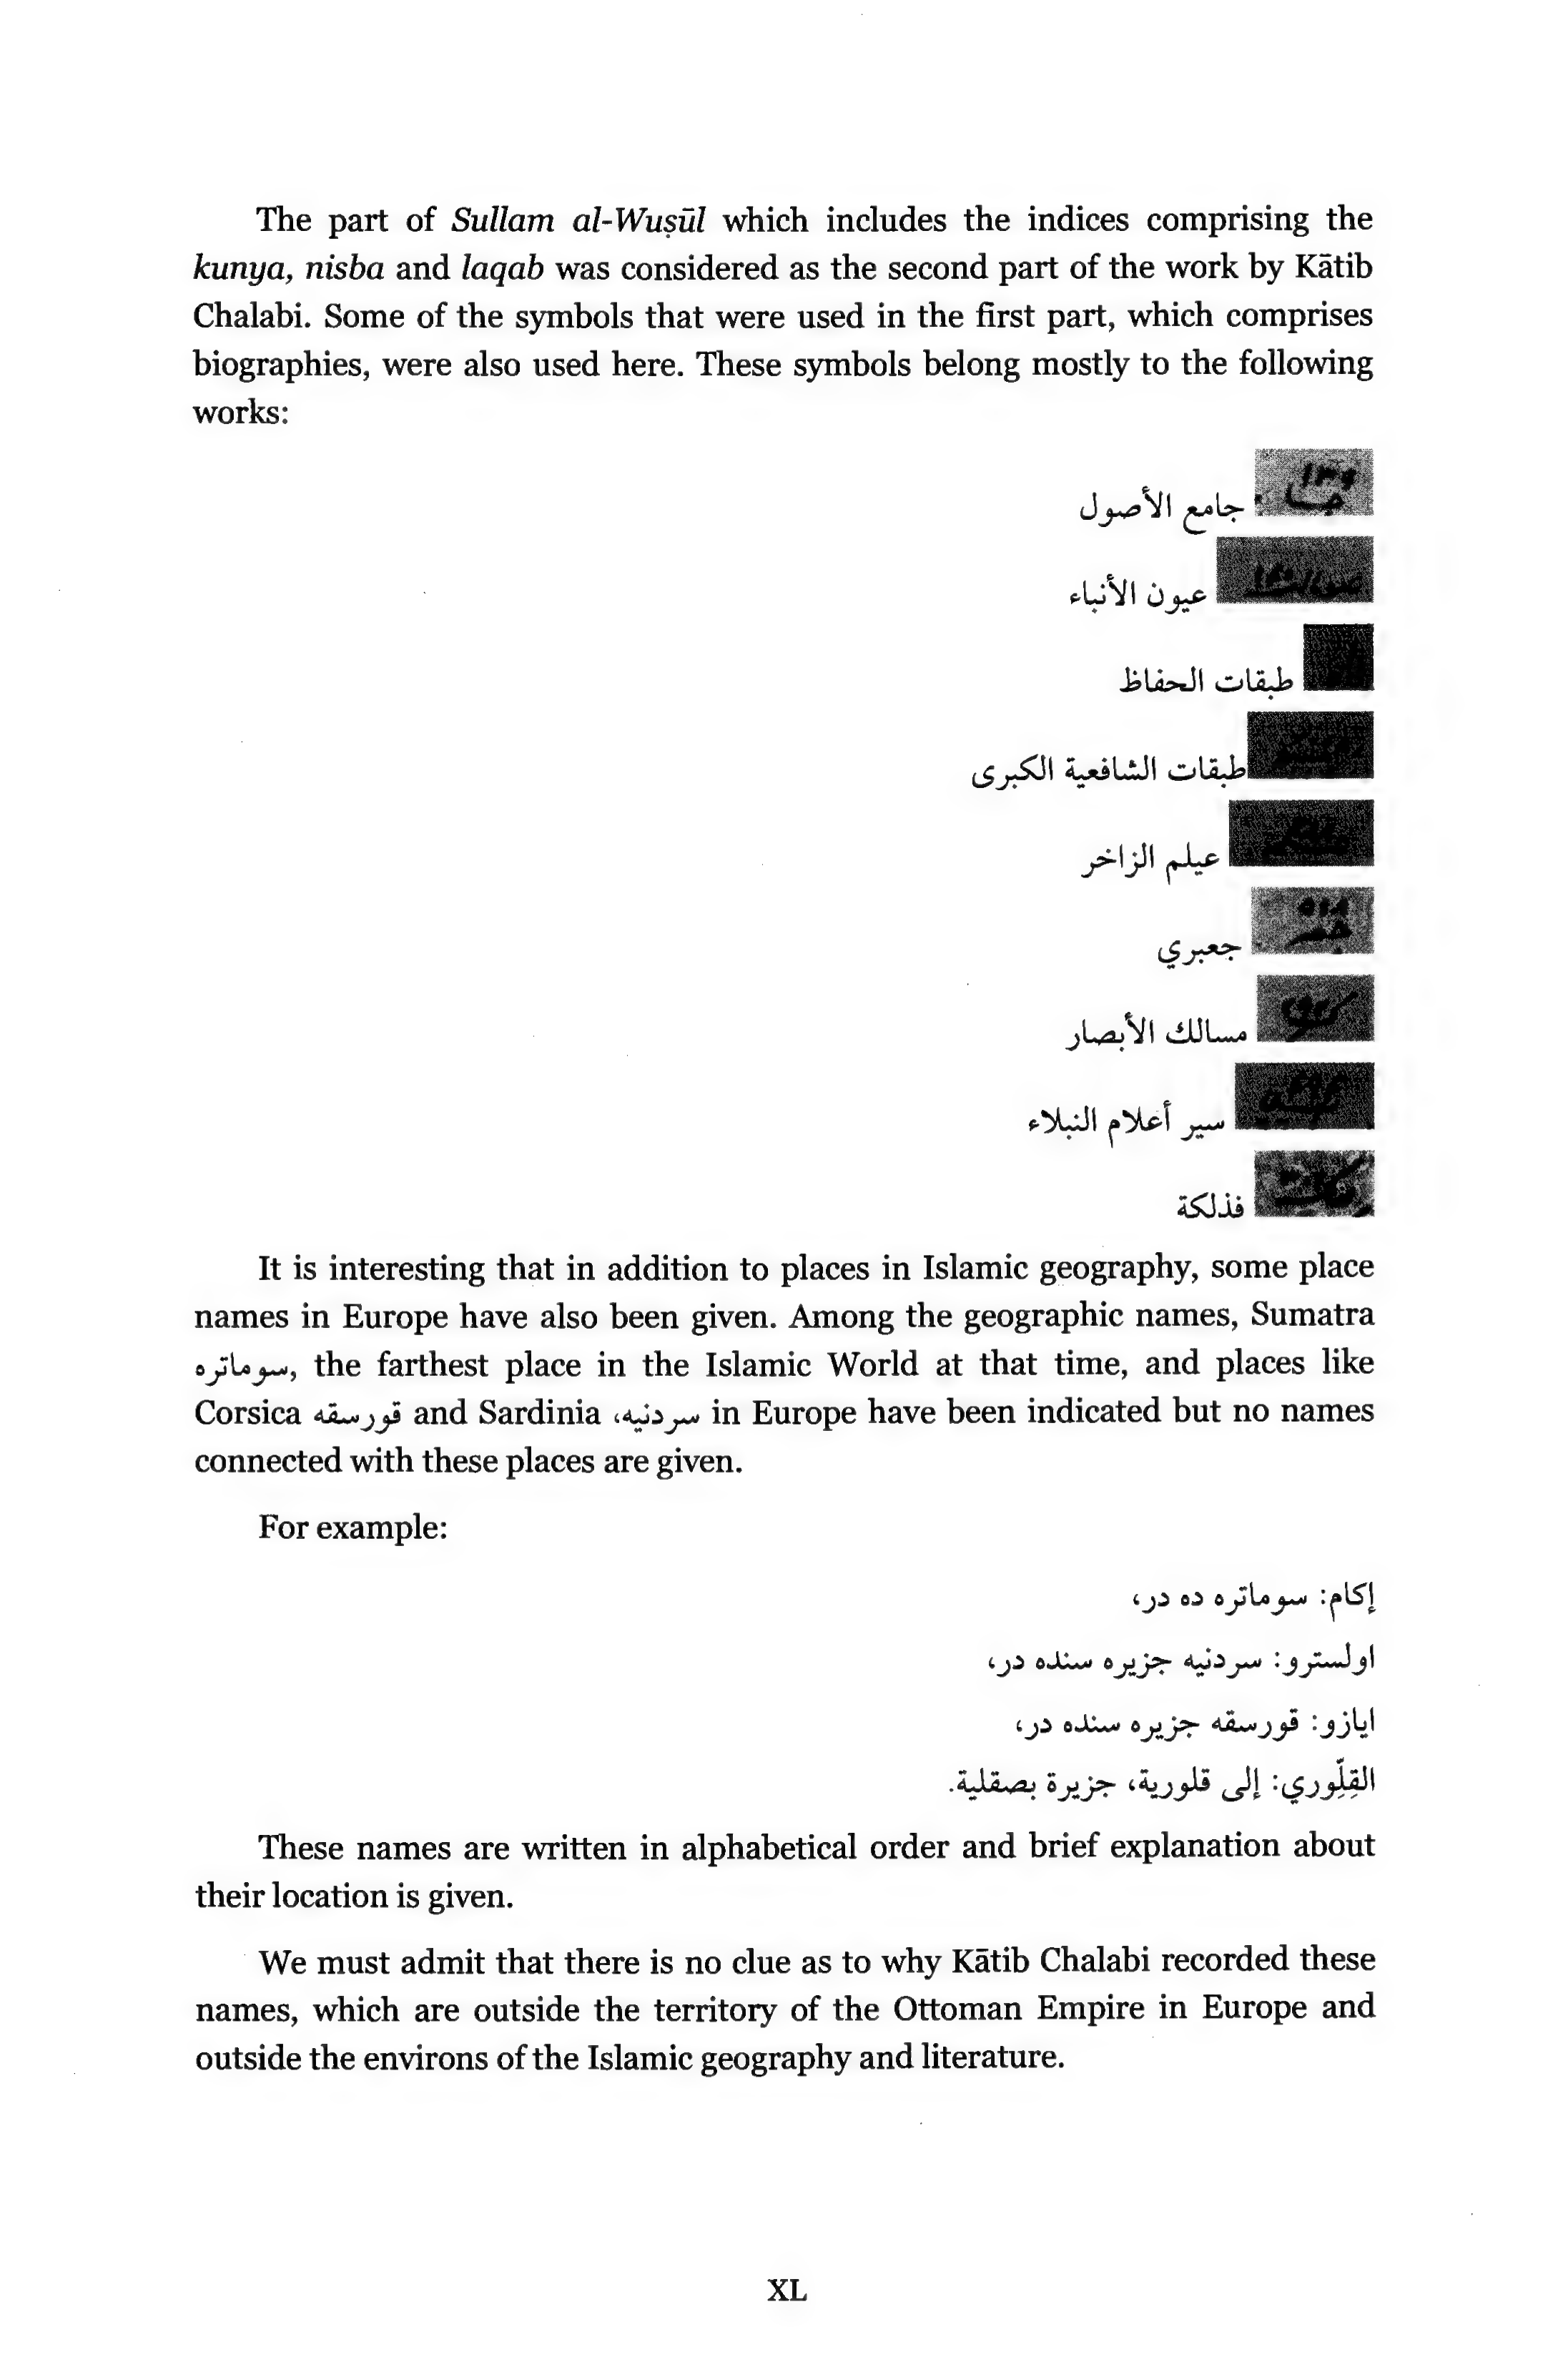 The part of Sullam al-Wuṣūl which includes the indices comprising the
kunya, nisba and laqab was considered as the second part of the work by Kātib
Chalabi. Some of the symbols that were used in the first part, which comprises
biographies, were also used here. These symbols belong mostly to the following
works:
جامع الأصول
عيون الأنباء
طبقات الحفاظ
طبقات الشافعية الكبرى
عيلم الزاخر
جعبري
مسالك الأبصار
سير أعلام النبلاء
فذلكة
It is interesting that in addition to places in Islamic geography, some place
names in Europe have also been given. Among the geographic names, Sumatra
سوماتره, the farthest place in the Islamic World at that time, and places like
Corsica قورسقه and Sardinia سردنيه، in Europe have been indicated but no names
connected with these places are given.
For example:
إكام: سوماتره ده در،
اولسترو: سردنيه جزيره سنده در،
ايازو: قورسقه جزيره سنده در،
القِلّوري: إلى قلورية، جزيرة بصقلية.
These names are written in alphabetical order and brief explanation about
their location is given.
We must admit that there is no clue as to why Kātib Chalabi recorded these
names, which are outside the territory of the Ottoman Empire in Europe and
outside the environs of the Islamic geography and literature.
XL